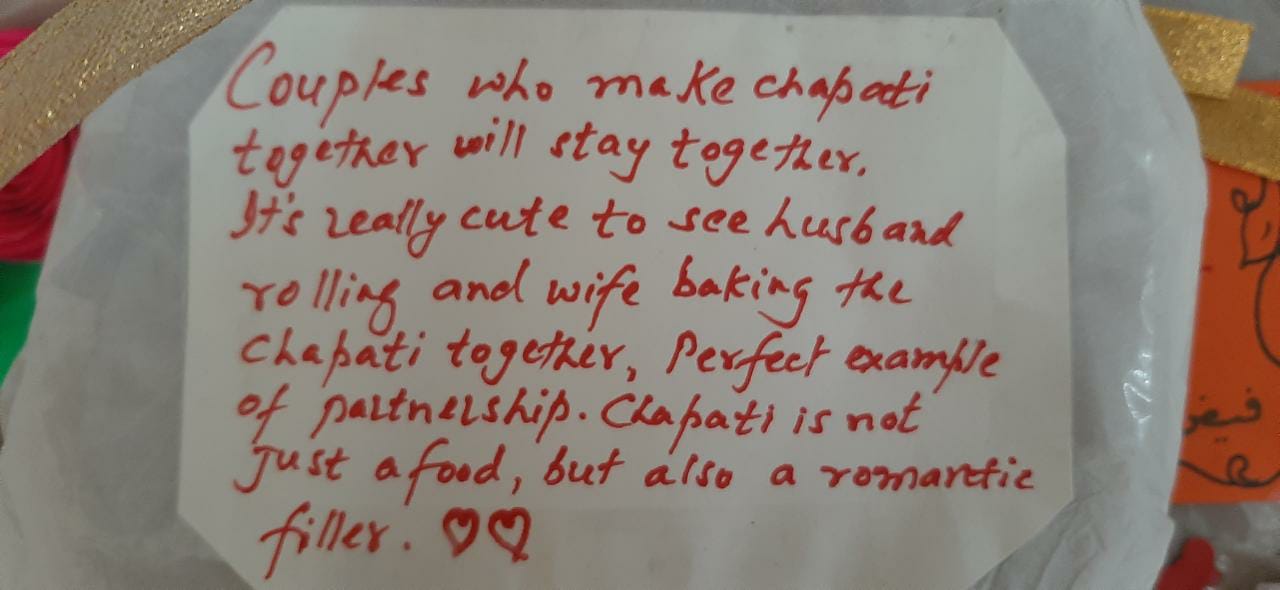 Couples who make chapati
together will stay together.
It's really cute to see husband
rolling and wife baking the
chapati together, Perfect example
of partnership. Chapati is not
Just a food, but also a romantic
filler. ♡♡